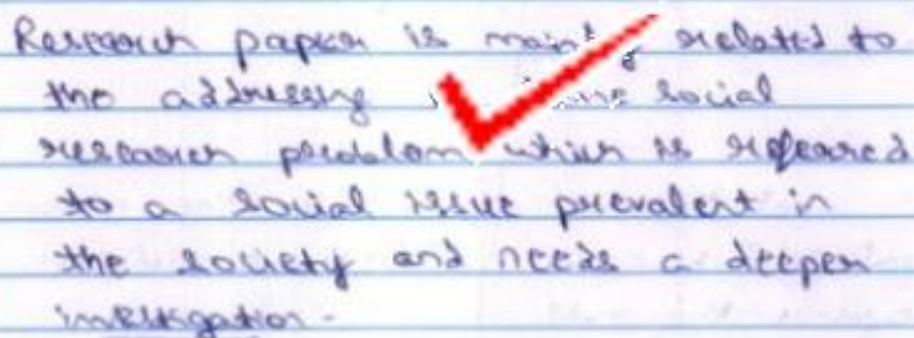 Research paper is mainly related to
the addressing social
research problem which is refeared
to a social issue prevalent in
the society and needs a deeper
investigation.